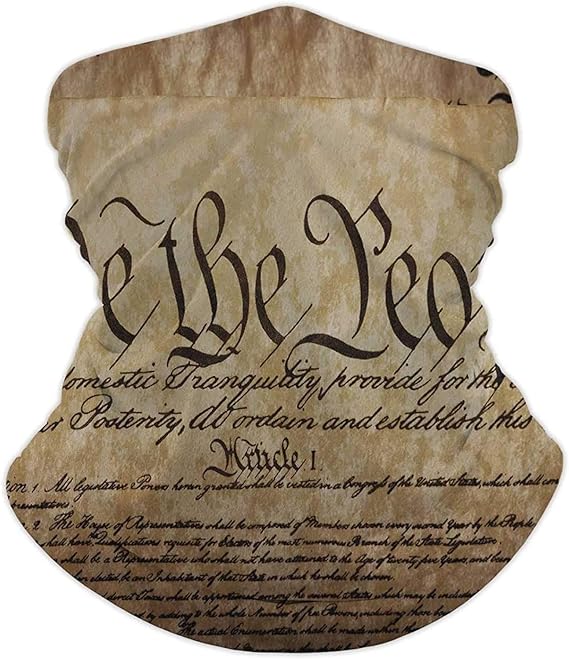 e the Peo
omestic Tranquility, provide for the
r Posterity, do ordain and establish this
Article I.
ion 1. All legislative Powers herein granted shall be vested in a Congress of the United States, which shall con
presentatives.
2. The House of Representatives shall be composed of Members chosen every second Year by the People
shall have Qualifications requisite for Electors of the most numerous Branch of the State Legislature.
shall be a Representative who shall not have attained to the Age of twenty five Years, and been
hen elected, be an Inhabitant of that State in which he shall be chosen.
direct Taxes shall be apportioned among the several States which may be included
by adding to the whole Number of free Persons, including those bou
The actual Enumeration shall be made within th